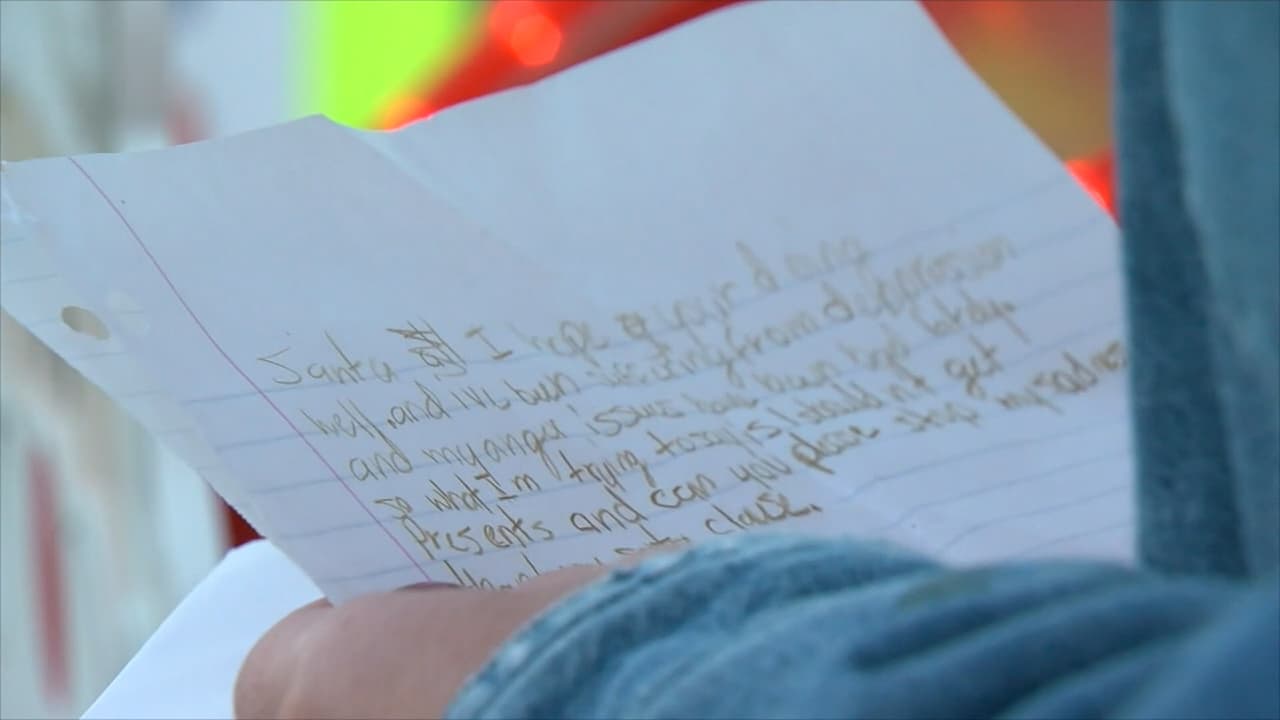 Santa I hope your doing
well, and ive been suffering from depression
and my anger issues have been bad lately.
so what I'm trying to say is I could n't get
Presents and can you please stop my sadness
thank you santa clause.